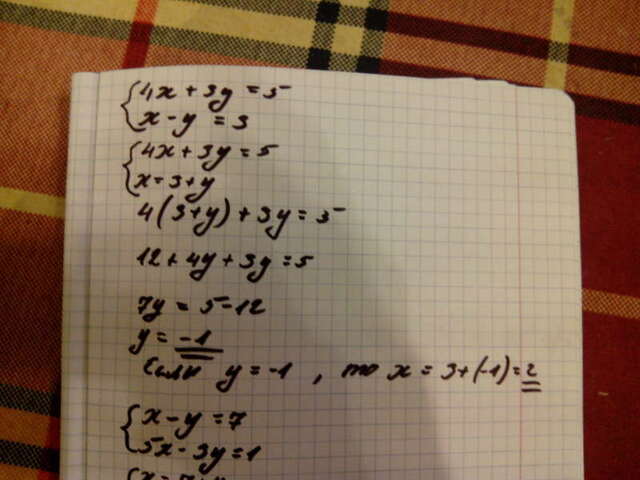 {4x + 3y = 5
{x - y = 3
{4x + 3y = 5
{x = 3 + y
4(3 + y) + 3y = 5
12 + 4y + 3y = 5
7y = 5 - 12
y = -1
Если y = -1 , то x = 3 + (-1) = 2
{x - y = 7
{5x - 3y = 1